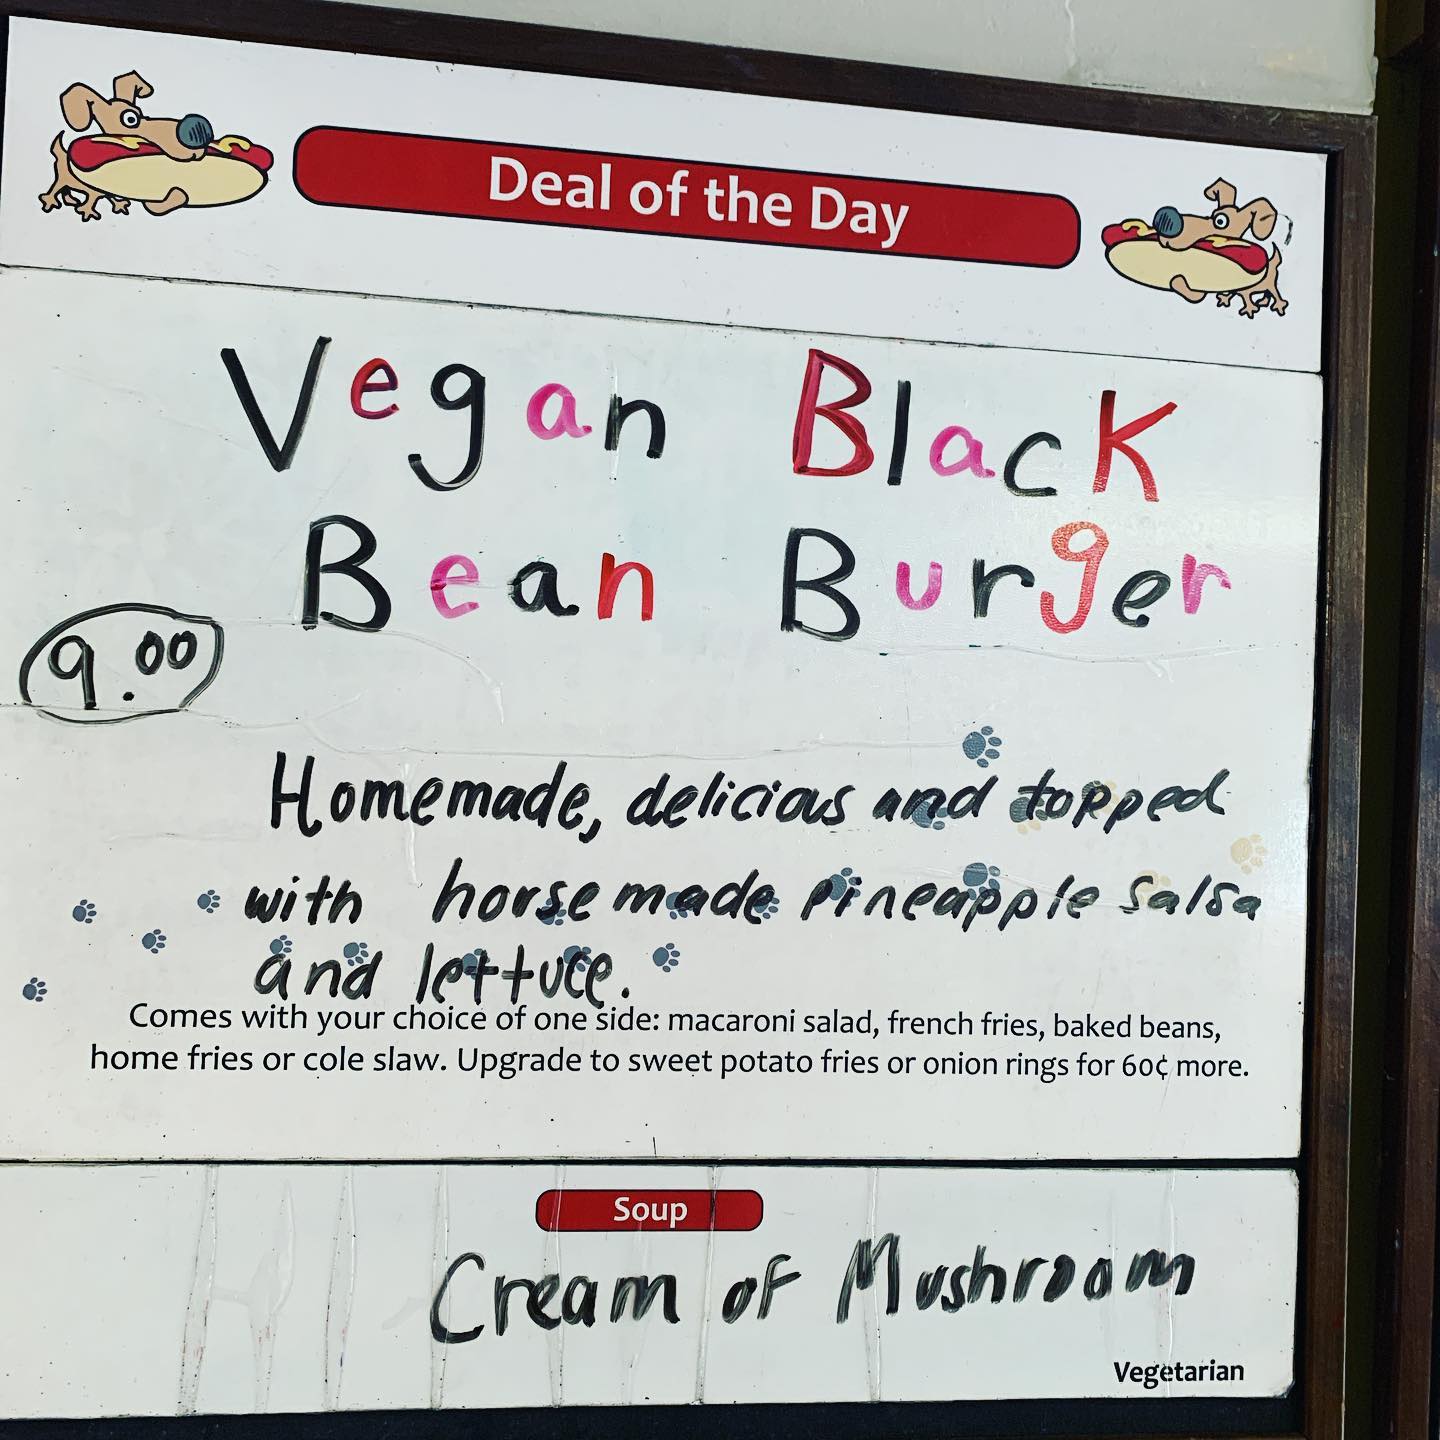 Deal of the Day
Vegan Black
Bean Burger
9.00
Homemade, delicious and topped
with horsemade pineapple salsa
and lettuce.
Comes with your choice of one side: macaroni salad, french fries, baked beans,
home fries or cole slaw. Upgrade to sweet potato fries or onion rings for 60¢ more.
Soup
Cream of Mushroom
Vegetarian